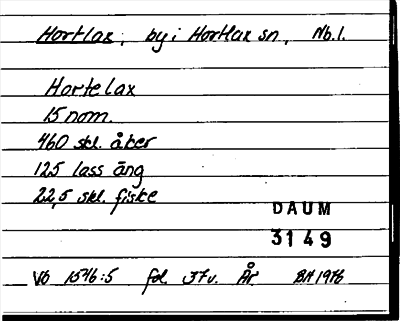 Hortlax, by i Hortlax sn, Nb.l.
Hortelax
15 nom.
460 skl. åker
125 lass äng
22,5 skl. fiske
DAUM
3149
Vb 1546:5 fol. 37v. År BH 1976